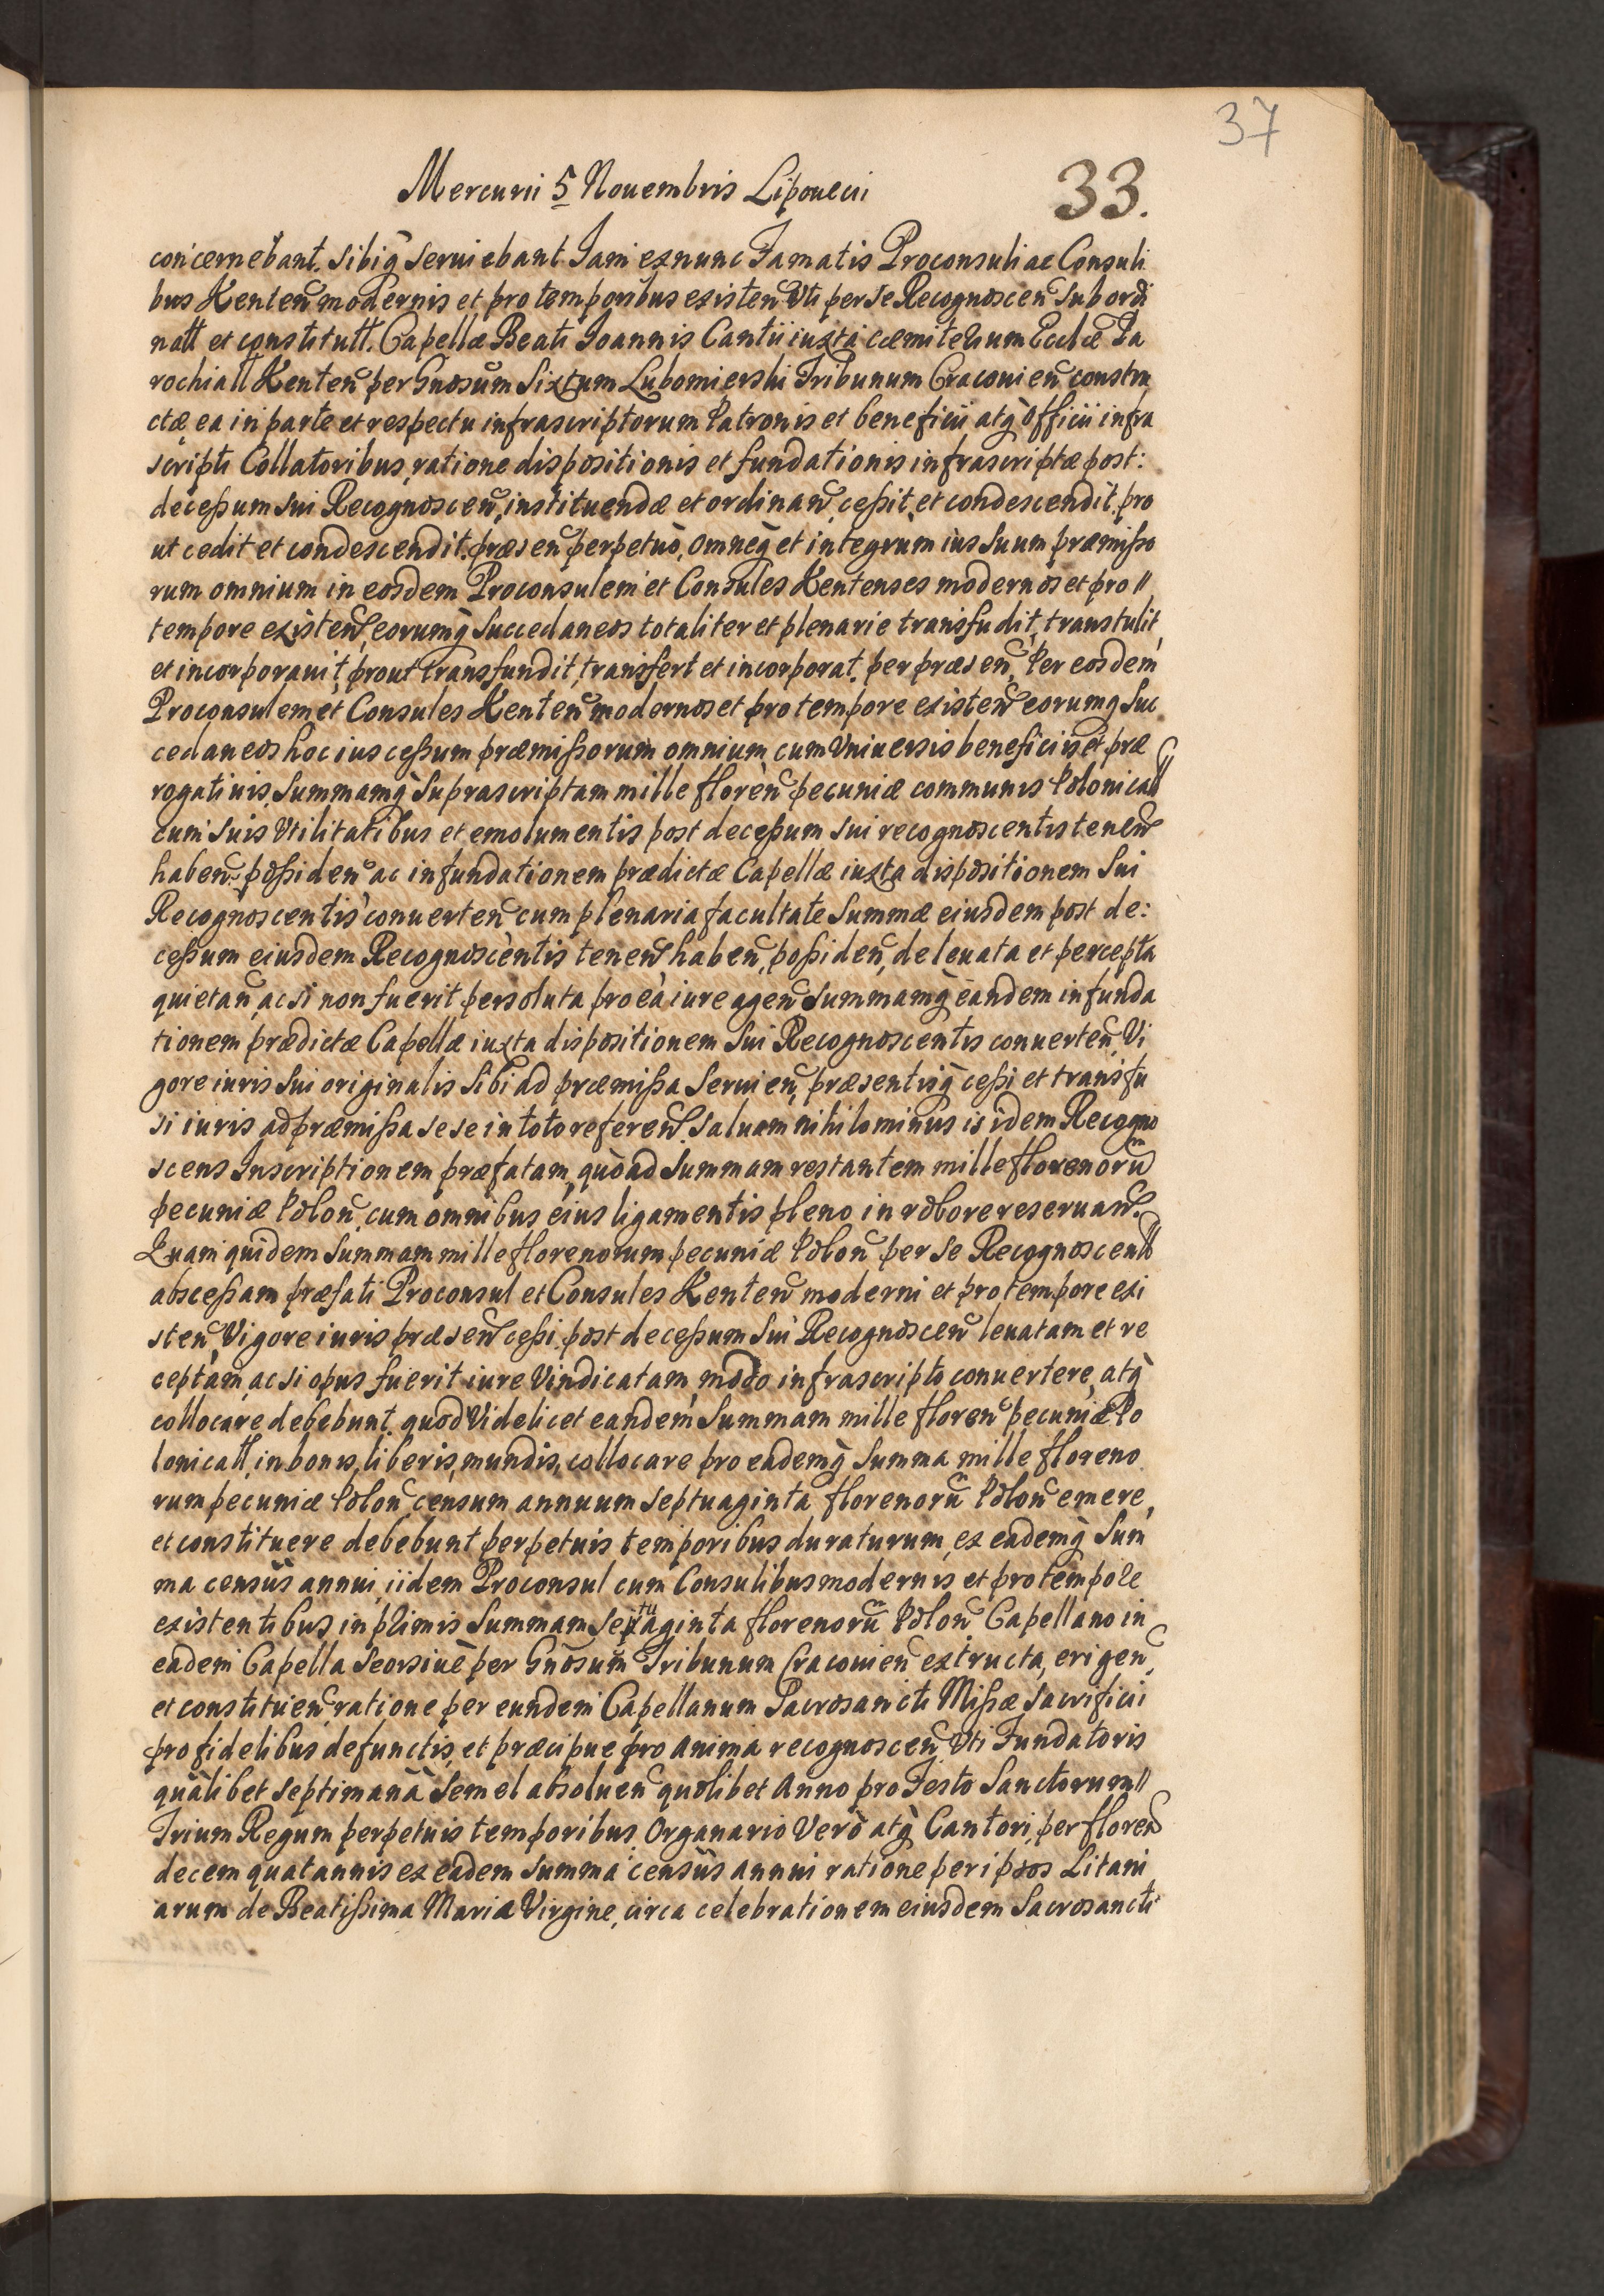 37
Mercurii 5 Nouembris Lipouecii 33.
concernebant. sibiq̀ seruiebant. Iam ex nunc Famatis Proconsuli ac Consuli
bus Kenteñ modernis et pro temporibus existeñ Vti per se Recognosceñ subordi
natt et constitutt. Capellæ Beati Ioannis Cantii iuxta cæmiterium Ecclæ Pa
rochiall Kenteñ per Gnosum Sixtum Lubomierski Tribunum Cracouieñ constru
ctæ ea in parte et respectu infrascriptorum Patronis et beneficii atq̀ Officii infra
scripti Collatoribus, ratione dispositionis et fundationis infrascriptæ post:
deceßum sui Recognosceñ, instituendæ et ordinañ, ceßit et condescendit, pro
ut cedit et condescendit. præseñ perpetuò, omneq̀ et integrum ius suum præmißo
rum omnium in eosdem Proconsulem et Consules Kentenses modernos et pro //
tempore existeñ, eorumq̀ Succedaneos totaliter et plenarie transfudit, transtulit,
et incorporauit, prout transfundit, transfert et incorporat. per præseñ, Per eosdem
Proconsulem et Consules Kenteñ modernos et pro tempore existeñ eorumq̀ Suc
cedaneos hoc ius ceßum præmißorum omnium cum Vniuersis beneficiis et præ
rogatiuis, Summamq̀ Suprascriptam mille floreñ pecuniæ communis Polonicall
cum suis Vtilitatibus et emolumentis post deceßum sui recognoscentis teneñ
habeñ, poßideñ ac in fundationem prædictæ Capellæ iuxta dispositionem Sui
Recognoscentis conuerteñ cum plenaria facultate Summæ eiusdem post de:
ceßum eiusdem Recognoscentis teneñ habeñ, poßideñ, de leuata et percepta
quietañ, ac si non fuerit persoluta pro ea iure ageñ Summamq̀ eandem in funda
tionem prædictæ Capellæ iuxta dispositionem Sui Recognoscentis conuerteñ, Vi
gore iuris Sui originalis Sibi ad præmißa Seruieñ, præsentisq̀ ceßi et transfu
si iuris ad præmißa sese in toto refereñ. Saluam nihilominus is idem Recogno
scens Inscriptionem præfatam, quò ad Summam restantem mille florenorũ
pecuniæ Poloñ, cum omnibus eius ligamentis pleno in robore reseruañ.
Quam quidem Summam mille florenorum pecuniæ Poloñ per se Recognoscentt
absceßam præfati Proconsul et Consules Kenteñ moderni et pro tempore exi
steñ, Vigore iuris præseñ ceßi. post deceßum Sui Recognosceñ leuatam et re
ceptam, ac si opus fuerit iure Vindicatam, modo infrascripto conuertere, atq̀
collocare debebunt. quod Videlicet eandem Summam mille floreñ pecuniæ Po
lonicall, in bonis, liberis, mundis, collocare pro eademq̀ Summa mille floreno
rum pecuniæ Poloñ censum annuum septuaginta florenorũ Poloñ emere,
et constituere debebunt perpetuis temporibus duraturum, ex eademq̀ Sum
ma censûs annui, iidem Proconsul cum Consulibus modernis et pro tempore
existentibus, in primis Summam septuaginta florenorũ Poloñ Capellano in
eadem Capella seorsiuè per Gnosum Tribunum Cracouieñ extructa, erigeñ,
et constitueñ, ratione per eundem Capellanum Sacrosancti Mißæ Sacrificii
pro fidelibus defunctis, et præcipue pro Anima recognosceñ, Vti Fundatoris
quàlibet septimanà Semel absolueñ quolibet Anno pro Festo Sanctorum //
Trium Regum perpetuis temporibus. Organario Verò atq̀ Cantori, per floreñ
decem quatannis ex eadem Summa censûs annui ratione per ipsos Litani
arum de Beatißima Maria Virgine, circa celebrationem eiusdem Sacrosancti